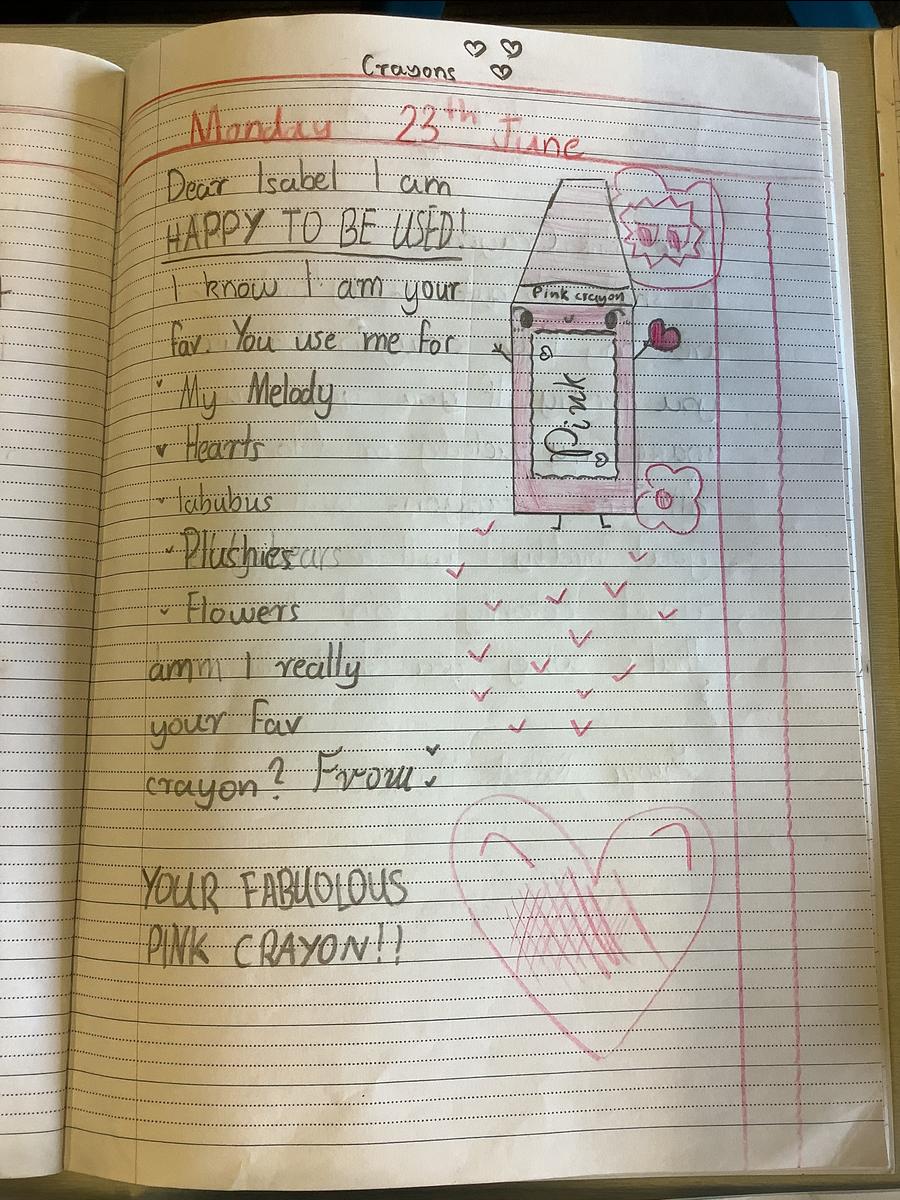 Crayons
Monday 23th June
Dear Isabel I am
HAPPY TO BE USED!
I know I am your
fav. You use me for
My Melody
Hearts
labubus
Plushies
Flowers
amm I really
your Fav
crayon? From:
YOUR FABUOLOUS
PINK CRAYON!!
Pink crayon
Pink